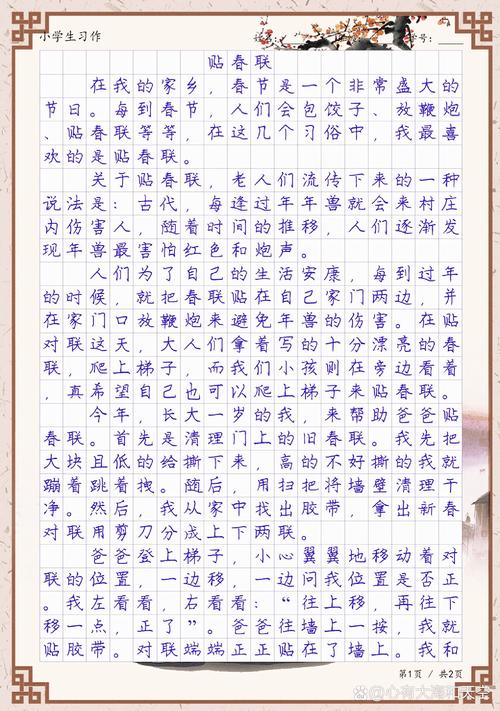 小学生习作
学号：
贴春联
在我的家乡，春节是一个非常盛大的
节日。每到春节，人们会包饺子、放鞭炮
、贴春联等等，在这几个习俗中，我最喜
欢的是贴春联。
关于贴春联，老人们流传下来的一种
说法是：古代，每逢过年年兽就会来村庄
内伤害人，随着时间的推移，人们逐渐发
现年兽最害怕红色和炮声。
人们为了自己的生活安康，每到过年
的时候，就把春联贴在自己家门两边，并
在家门口放鞭炮来避免年兽的伤害。在贴
对联这天，大人们拿着写的十分漂亮的春
联，爬上梯子，而我们小孩则在旁边看着
，真希望自己也可以爬上梯子来贴春联。
今年，长大一岁的我，来帮助爸爸贴
春联。首先是清理门上的旧春联。我先把
大块且低的给撕下来，高的不好撕的我就
蹦着跳着拽。随后，用扫把将墙壁清理干
净。然后，我从家中找出胶带，拿出新春
对联用剪刀分成上下两联。
爸爸登上梯子，小心翼翼地移动着对
联的位置，一边移，一边问我位置是否正
。我左看看，右看看：“往上移，再往下
移一点，正了”。爸爸往墙上一按，我就
贴胶带。对联端端正正贴在了墙上。我和
第1页 / 共2页
@心有大海和天空